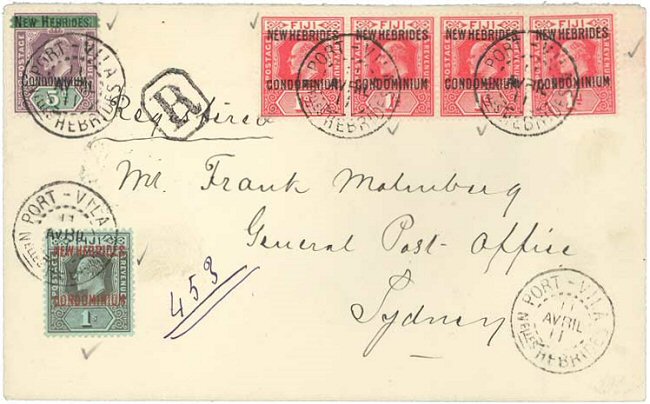 NEW HEBRIDES.
POSTAGE
CONDOMINIUM
5
PORT-VILA
AVRIL
11
HEBRIDES
R
Registered
FIJI FIJI FIJI FIJI
NEW HEBRIDES NEW HEBRIDES NEW HEBRIDES NEW HEBRIDES
CONDOMINIUM CONDOMINIUM CONDOMINIUM CONDOMINIUM
POSTAGE REVENUE
PORT-VILA PORT-VILA
HEBRIDES HEBRIDES
Mr. Frank Malmberg
General Post Office
Sydney
453
PORT-VILA
11
FIJI
NEW HEBRIDES
CONDOMINIUM
POSTAGE REVENUE
1s
PORT-VILA
11
AVRIL
11
HEBRIDES